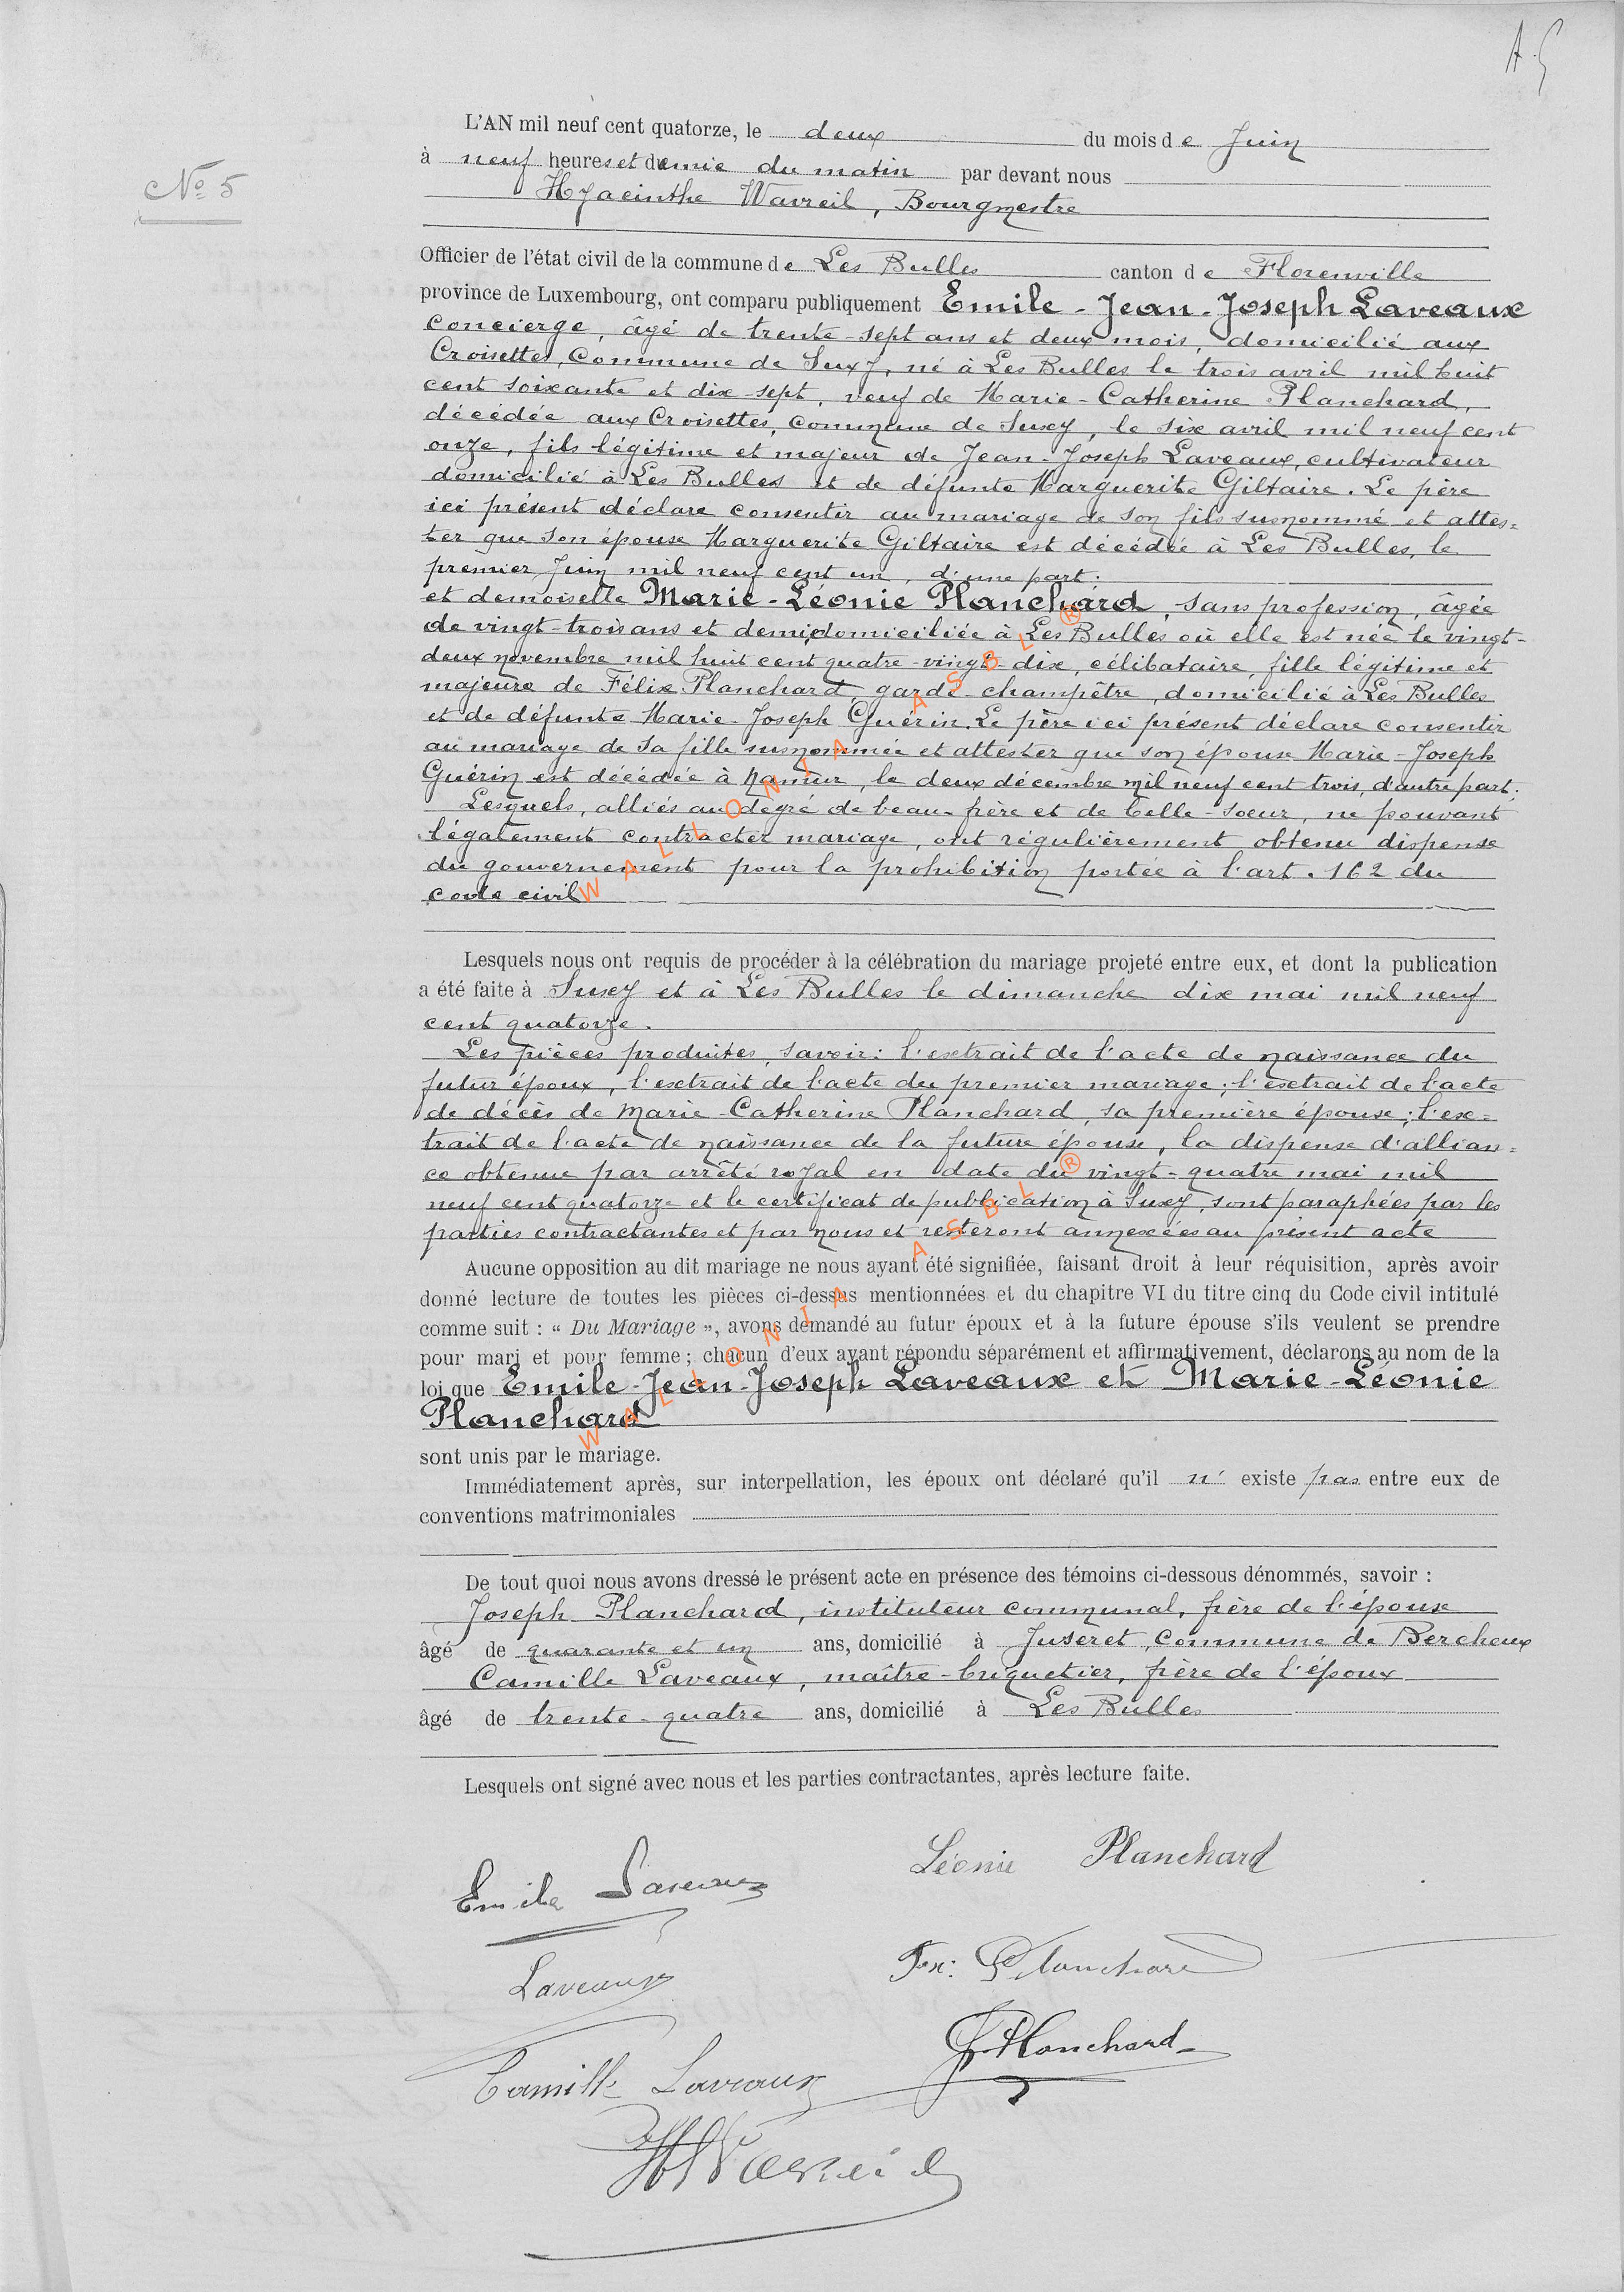 A.G
N° 5
L'AN mil neuf cent quatorze, le deux du mois de Juin
à neuf heures et demie du matin par devant nous
Hyacinthe Wavreil, Bourgmestre
Officier de l'état civil de la commune de Les Bulles canton de Florenville
province de Luxembourg, ont comparu publiquement Emile-Jean-Joseph Laveaux
concierge, âgé de trente-sept ans et deux mois, domicilié aux
Croisettes, commune de Suxy, né à Les Bulles le trois avril mil huit
cent soixante et dix-sept, veuf de Marie-Catherine Planchard,
décédée aux Croisettes, commune de Suxy, le six avril mil neuf cent
onze, fils légitime et majeur de Jean-Joseph Laveaux, cultivateur
domicilié à Les Bulles et de défunte Marguerite Giltaire. Le père
ici présent déclare consentir au mariage de son fils susnommé et attes=
ter que son épouse Marguerite Giltaire est décédée à Les Bulles, le
premier Juin mil neuf cent un, d'une part;
et demoiselle Marie-Léonie Planchard, sans profession, âgée
de vingt-trois ans et demi, domiciliée à Les Bulles où elle est née le vingt-
deux novembre mil huit cent quatre-vingt-dix, célibataire, fille légitime et
majeure de Félix Planchard, garde-champêtre, domicilié à Les Bulles
et de défunte Marie-Joseph Guérin. Le père ici présent déclare consentir
au mariage de sa fille susnommée et attester que son épouse Marie-Joseph
Guérin est décédée à Namur, le deux décembre mil neuf cent trois, d'autre part;
Lesquels, alliés au degré de beau-frère et de belle-soeur, ne pouvant
légalement contracter mariage, ont régulièrement obtenu dispense
du gouvernement pour la prohibition portée à l'art. 162 du
code civil
Lesquels nous ont requis de procéder à la célébration du mariage projeté entre eux, et dont la publication
a été faite à Suxy et à Les Bulles le dimanche dix mai mil neuf
cent quatorze.
Les pièces produites, savoir: l'extrait de l'acte de naissance du
futur époux, l'extrait de l'acte du premier mariage; l'extrait de l'acte
de décès de Marie-Catherine Planchard, sa première épouse; l'ex=
trait de l'acte de naissance de la future épouse, la dispense d'allian=
ce obtenue par arrêté royal en date du vingt-quatre mai mil
neuf cent quatorze et le certificat de publication à Suxy, sont paraphées par les
parties contractantes et par nous et resteront annexées au présent acte
Aucune opposition au dit mariage ne nous ayant été signifiée, faisant droit à leur réquisition, après avoir
donné lecture de toutes les pièces ci-dessus mentionnées et du chapitre VI du titre cinq du Code civil intitulé
comme suit : « Du Mariage », avons demandé au futur époux et à la future épouse s'ils veulent se prendre
pour mari et pour femme ; chacun d'eux ayant répondu séparément et affirmativement, déclarons au nom de la
loi que Emile-Jean-Joseph Laveaux et Marie-Léonie
Planchard
sont unis par le mariage.
Immédiatement après, sur interpellation, les époux ont déclaré qu'il n' existe pas entre eux de
conventions matrimoniales
De tout quoi nous avons dressé le présent acte en présence des témoins ci-dessous dénommés, savoir :
Joseph Planchard, instituteur communal, frère de l'épouse
âgé de quarante et un ans, domicilié à Juseret, commune de Bercheux
Camille Laveaux, maître-briquetier, frère de l'époux
âgé de trente-quatre ans, domicilié à Les Bulles
Lesquels ont signé avec nous et les parties contractantes, après lecture faite.
Emile Laveaux
Léonie Planchard
Laveaux
Fx: Planchard
J. Planchard
Camille Laveaux
H Wavreil
WALLONIA ASBL ®
WALLONIA ASBL ®